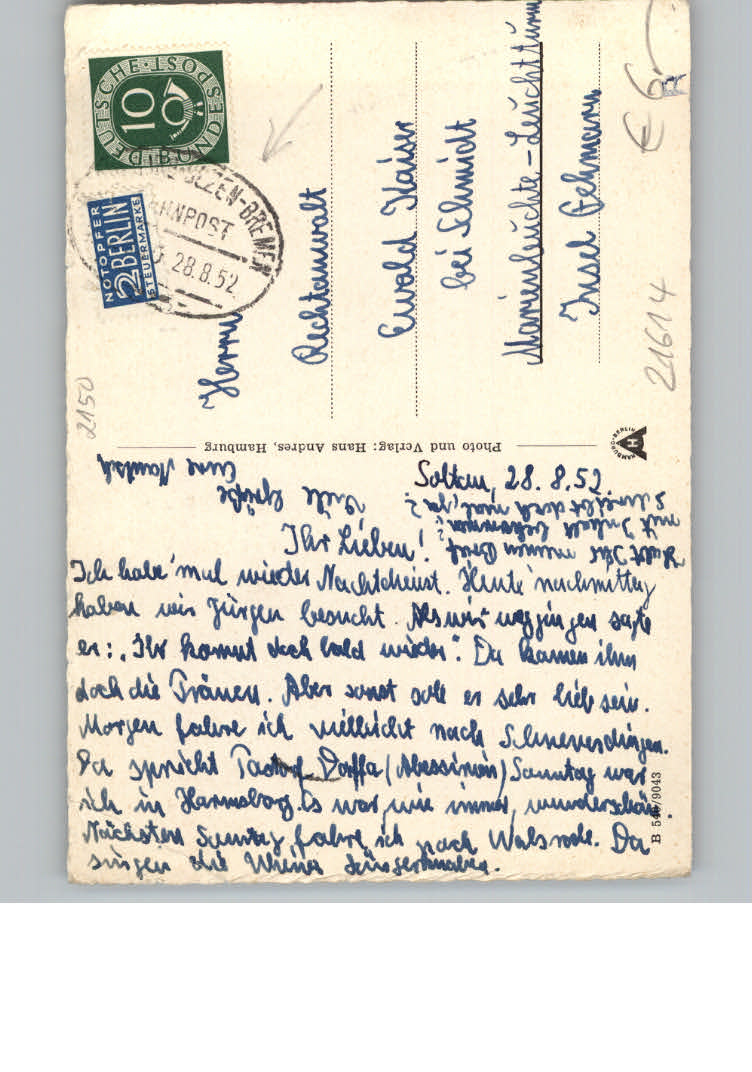 DEUTSCHE BUNDESPOST
10
NOTOPFER
2 BERLIN
STEUERMARKE
UELZEN-BREMEN
BAHNPOST
28.8.52
Herrn
Rechtanwalt
Ewald Kaiser
bei Schmidt
Marienleuchte-Leuchtturm
Insel Fehmarn
€ 6-
21614
2150
Photo und Verlag: Hans Andres, Hamburg
HAMBURG-BERLIN
H
B 540/9043
Soltau, 28. 8. 52
Ihr Lieben!
Ich habe 'mal wieder Nachtdienst. Heute nachmittag
haben wir Jürgen besucht. Als wir weggingen sagte
er: „Ihr kommt doch bald wieder". Da kamen ihm
doch die Tränen. Aber sonst soll er sehr lieb sein.
Morgen fahre ich vielleicht nach Schneverdingen.
Da spricht Pastor Daffa (Abessinien) Sonntag war
ich in Hermsburg. Es war, wie immer, wunderschön.
Nächsten Sonntag fahre ich nach Walsrode. Da
singen die Wiener Sängerknaben.
Habt Ihr meinen Brief
mit Inhalt bekommen?
Schreibt doch mal, ja?
Viele Grüße
Eure